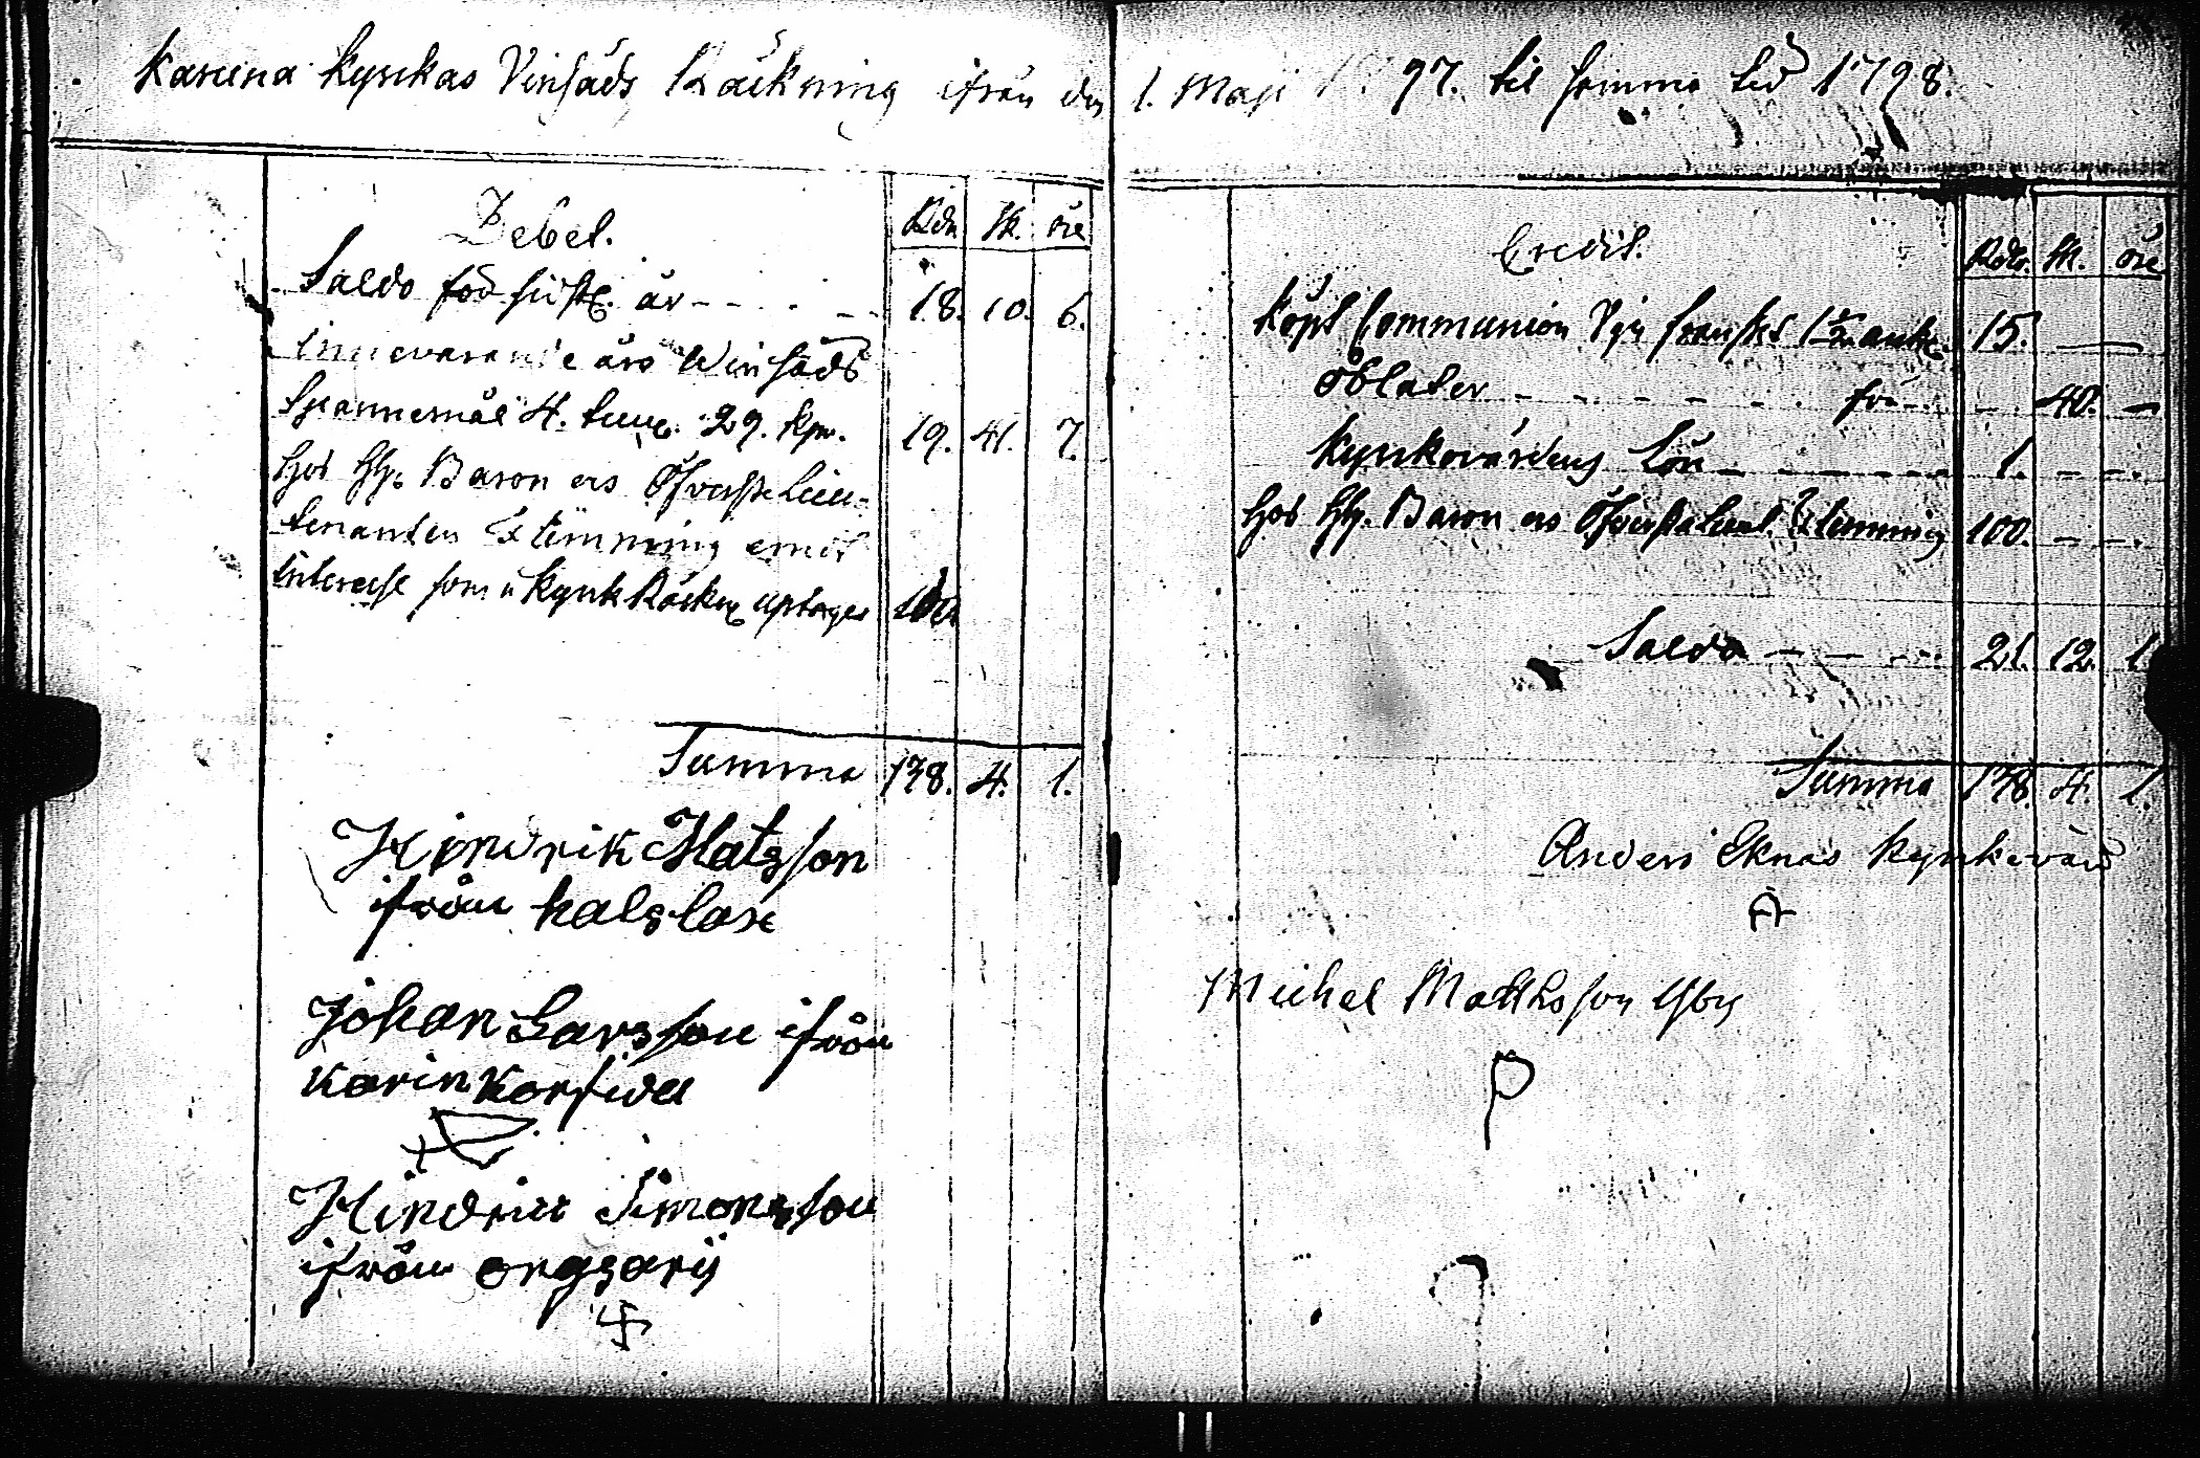 Karuna Kyrckas Vinsäds Räckning ifrån den 1. Maji 1797. til samma tid 1798.
Debet.
Rdr Sk. öre
Saldo för sidstl. år - - - - 18. 10. 6.
innevarande års Winsäds
Spannemål 4. tunn. 29. kpr. 19. 41. 7.
hos HH. Baron ers Öfverste Lieu-
tenanten Flemming emot
Interesse som i Kyrk Räckn uptages 100.
Summa 138. 4. 1.
Hindrik Matsson
ifrån kalslax
Johan Larsson ifrån
Karin Korfwa
Hindrick Simonsson
ifrån
Credit.
Rdr. Sk. öre
Köpt Communion Vin franskt 1/2 ank. 15. — —
Oblater - - - - - - för - - 40. —
Kyrkovärdens Lön - - - - - 1. - - -
hos HH. Baron ers Öfverste Lieut. Flemming 100. - - -
Saldo - - - - 21. 12. 1
Summa 138. 4. 1.
Anders Eknäs Kyrkevärd
Michel Matthsson